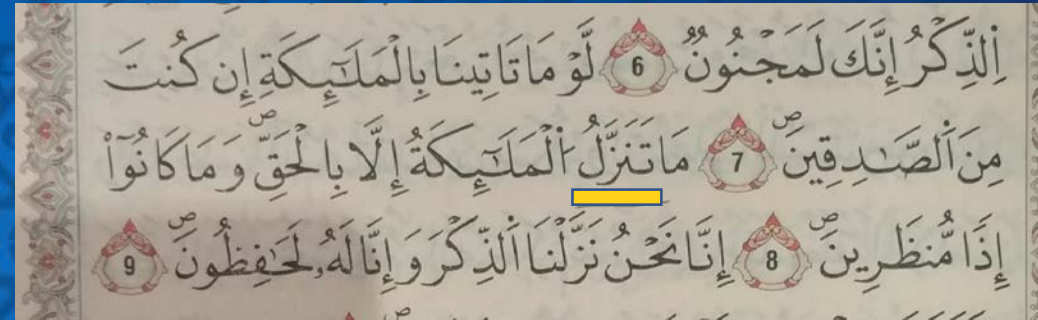 اِ۬لذِّكْرُ إِنَّكَ لَمَجْنُونٞ 6 لَّوْ مَا تَاتِينَا بِالْمَلَٰٓئِكَةِ إِن كُنتَ
مِنَ اَ۬لصَّٰدِقِينَۖ 7 مَا تَنَزَّلُ اُ۬لْمَلَٰٓئِكَةُ إِلَّا بِالْحَقِّۖ وَمَا كَانُوٓاْ
إِذاٗ مُّنظَرِينَۖ 8 إِنَّا نَحْنُ نَزَّلْنَا اَ۬لذِّكْرَ وَإِنَّا لَهُۥ لَحَٰفِظُونَۖ 9